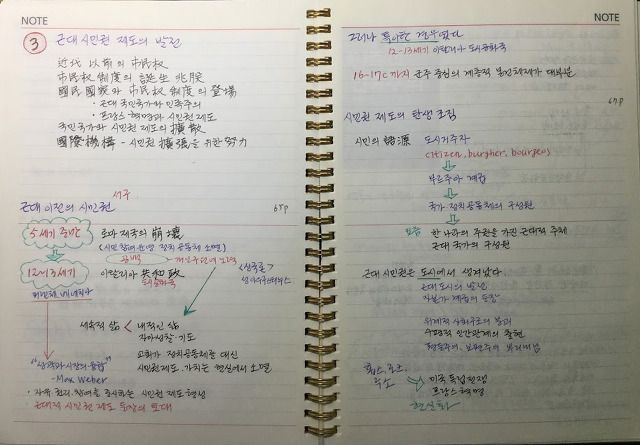 NOTE
③ 근대 시민권 제도의 발전
近代 以前의 市民权
市民权 制度의 誕生 兆朕
國民 國家와 市民权 制度의 登場
· 근대 국민국가와 민족주의
· 프랑스 혁명과 시민권 제도
국민국가와 시민권 제도의 擴散
國際機構 - 시민권 擴張을 위한 努力
서구
근대 이전의 시민권 65p
5세기 중반 로마 제국의 崩壞
(시민 참여 운영 정치 공동체 소멸)
12~13세기 이탈리아 共和政
도시공화국
세속적 삶 < 내적인 삶
자아성찰·기도
교회가 정치공동체를 대신
시민권 제도, 가치는 현실에서 소멸
- Max Weber
· 자유, 권리, 참여를 중시하는 시민권 제도 형성
근대적 시민권 제도 등장의 토대
NOTE
그러나 특이한 경우였다
12-13세기 이탈리아 도시공화국
16-17C 까지 군주 중심의 계층적 봉건체제가 대부분
67p
시민권 제도의 탄생 조짐
시민의 語源 도시거주자
citizen, burgher, bourgeois
부르주아 계급
국가 정치공동체의 구성원
요즘 한 나라의 주권을 가진 근대적 주체
근대 국가의 구성원
근대 시민권은 도시에서 생겨났다
근대 도시의 발전
자본가 계급의 등장
위계적 사회구조의 붕괴
수평적 인간관계의 출현
홉스, 로크,
루소
미국 독립전쟁
프랑스 혁명
현실화